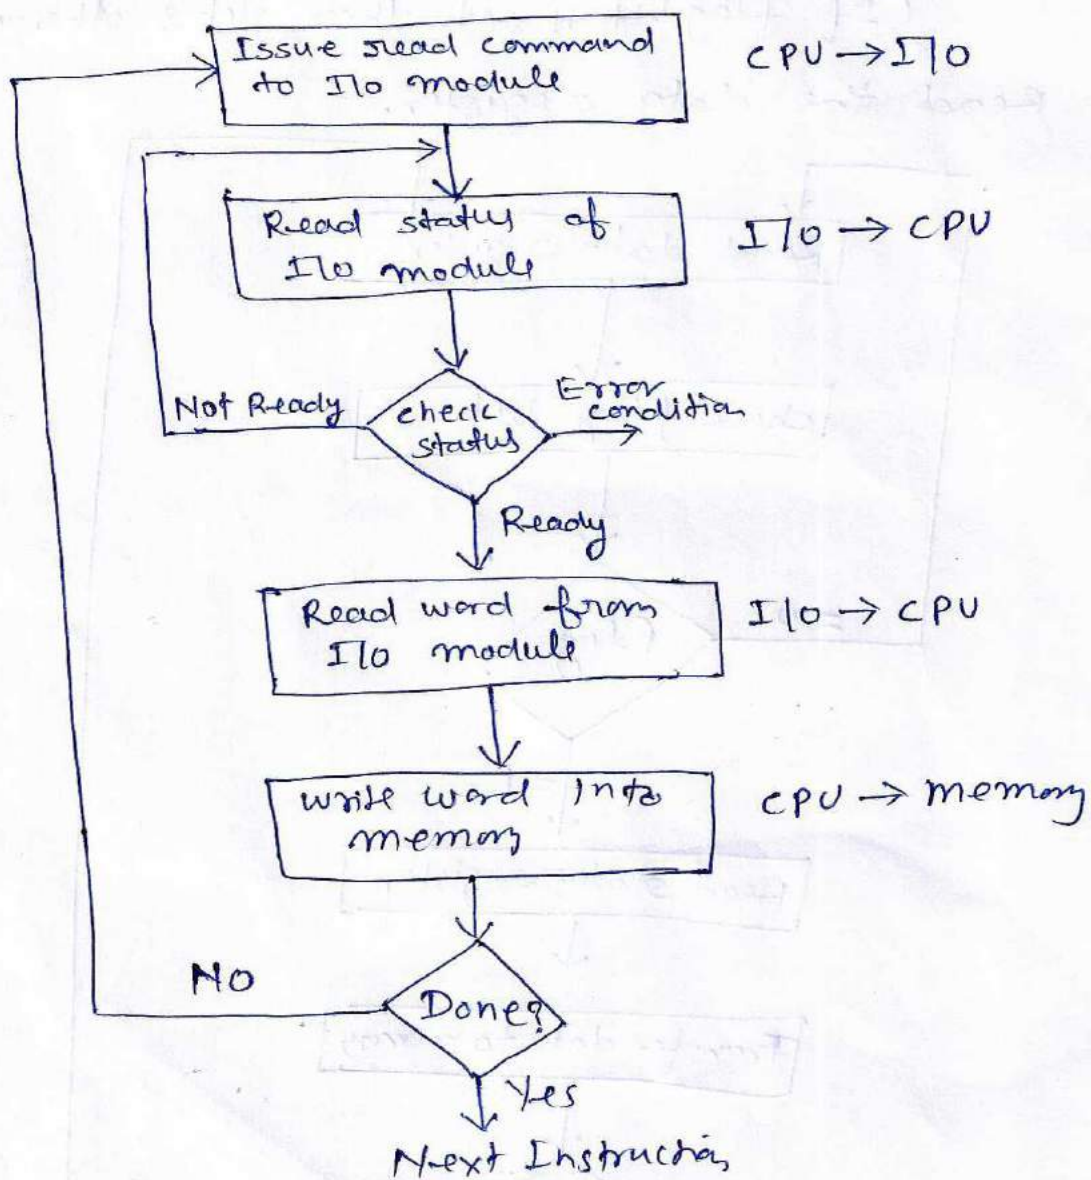 Issue read command
to I/O module
CPU → I/O
Read status of
I/O module
I/O → CPU
Not Ready
check
status
Error
condition
Ready
Read word from
I/O module
I/O → CPU
write word into
memory
CPU → memory
No
Done?
Yes
Next Instruction